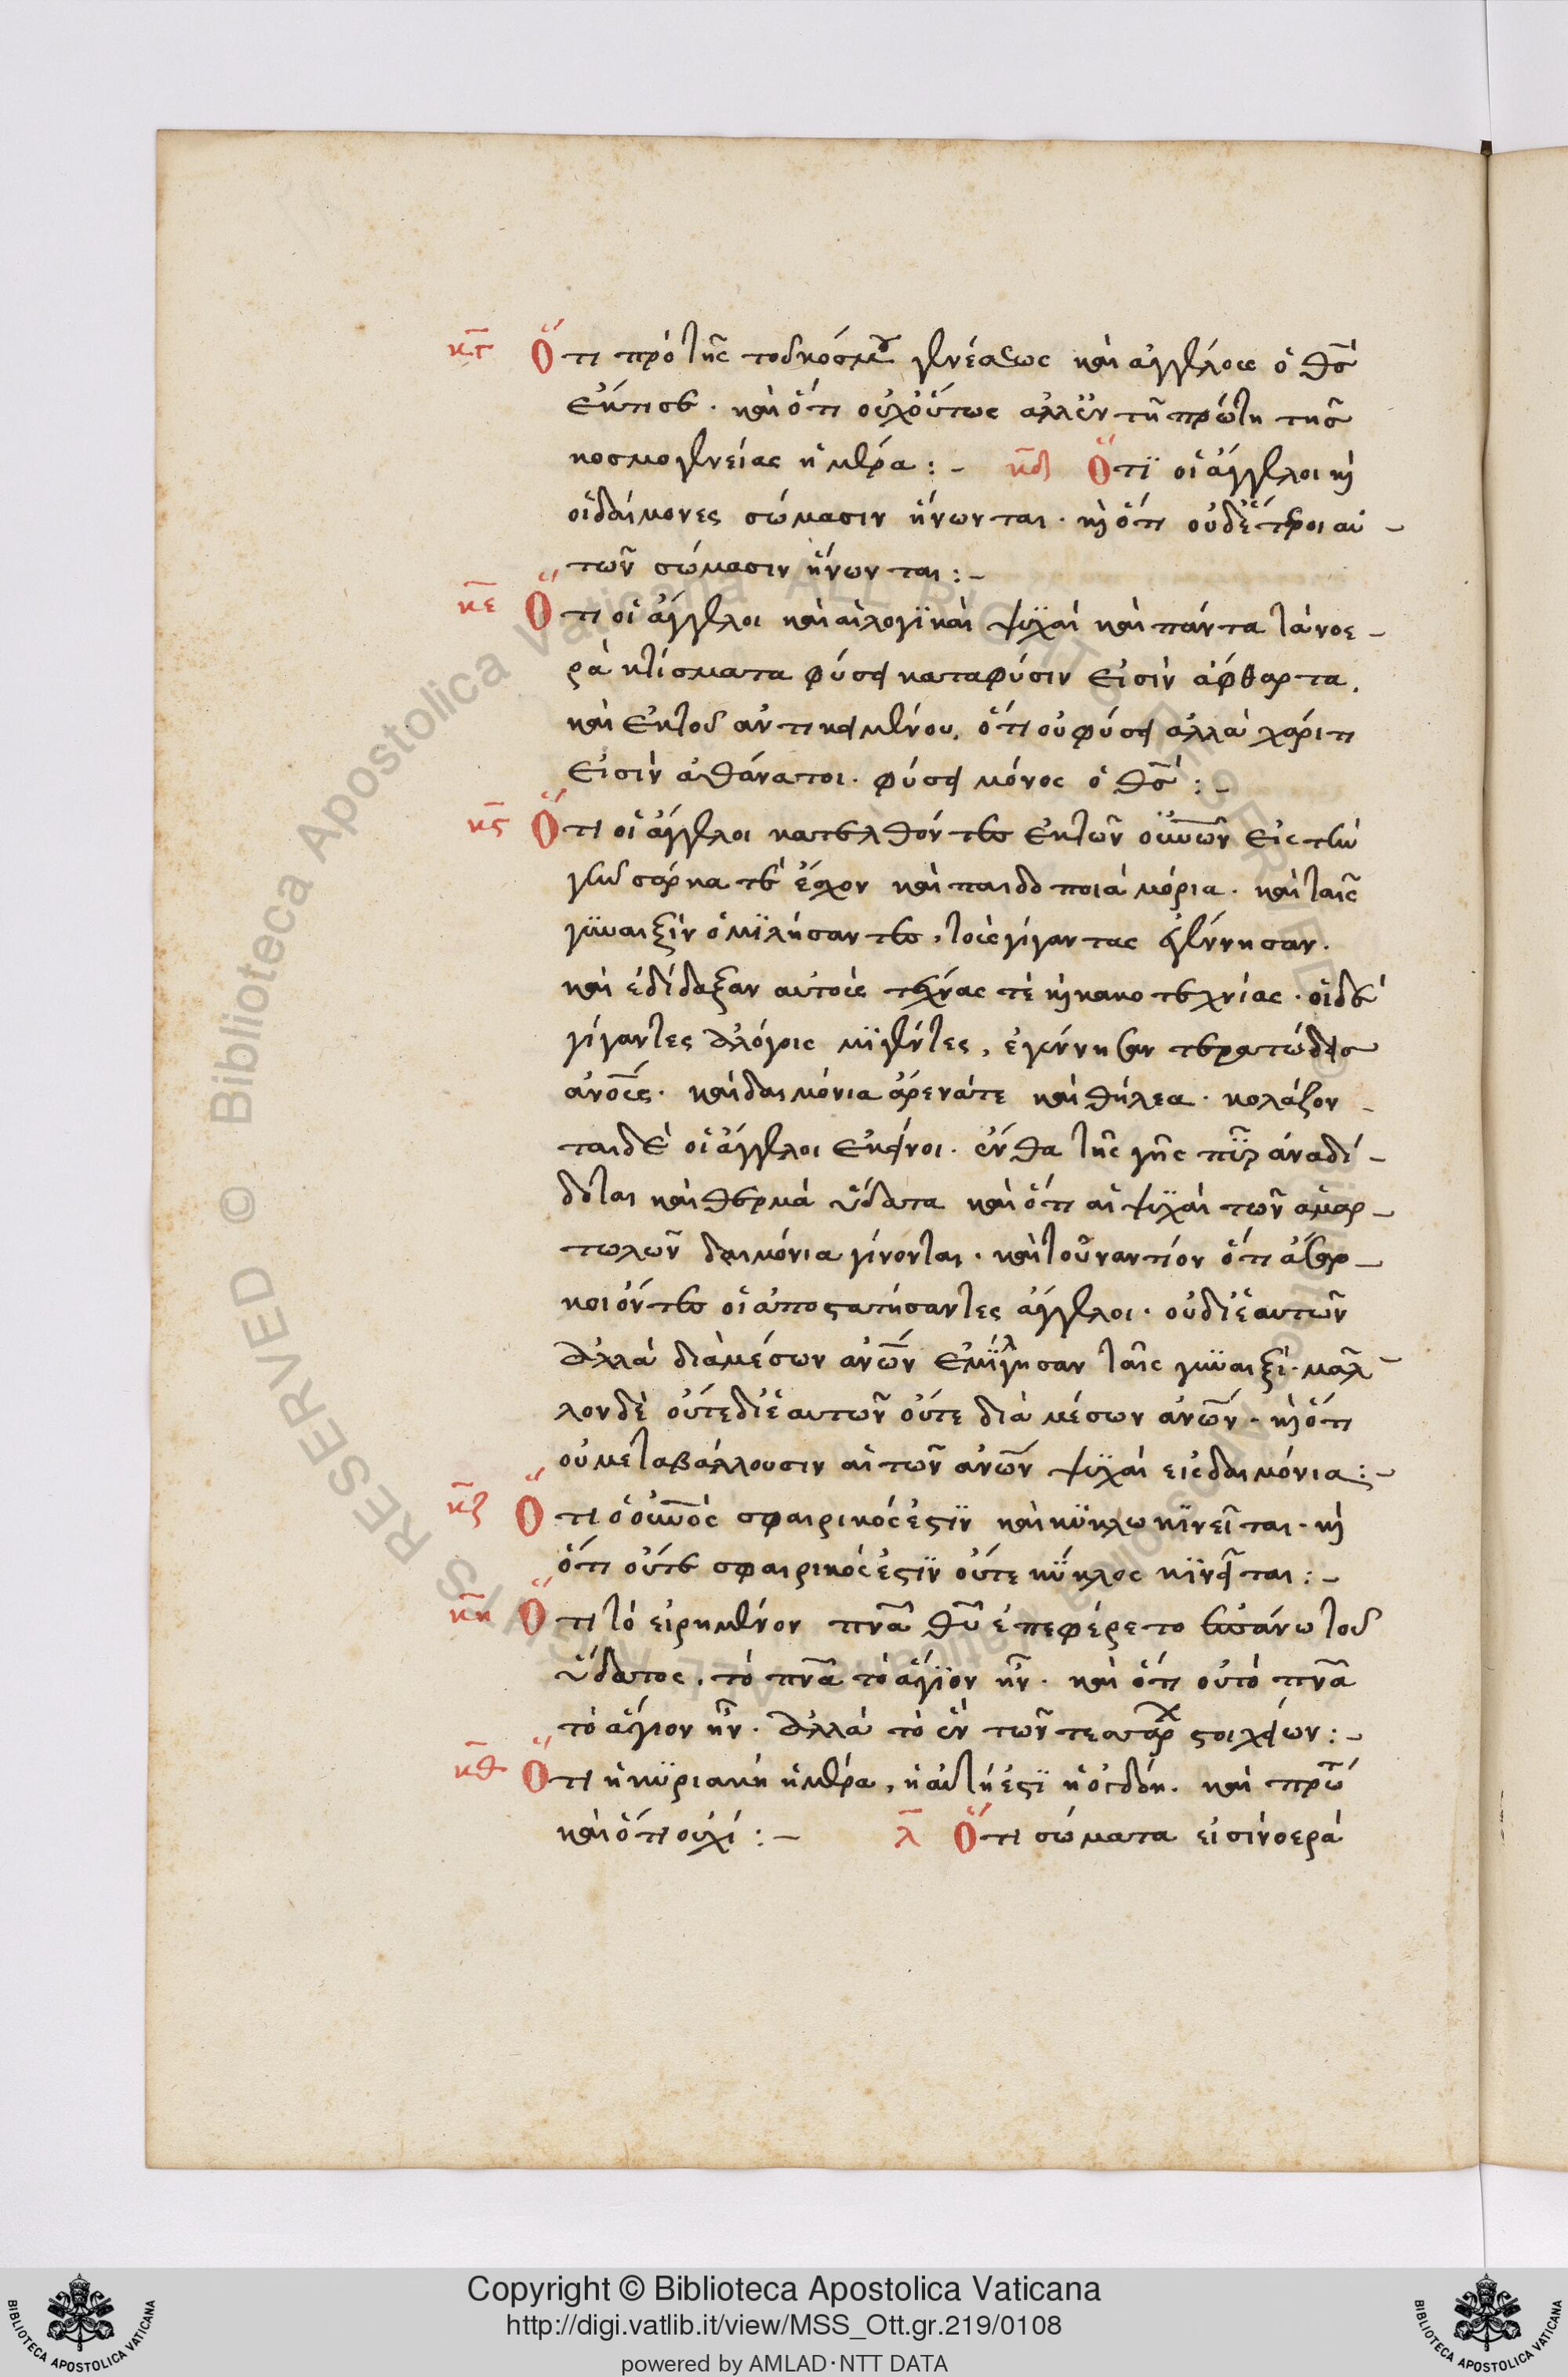 κγ Ὅτι πρὸ τῆς τοῦ κόσμου γενέσεως καὶ ἀγγέλους ὁ θς
ἔκτισε· καὶ ὅτι οὐχ οὕτως ἀλλ' ἐν τῆ πρώτη τῆς
κοσμογενείας ἡμέρα :- κδ Ὅτι οἱ ἄγγελοι καὶ
οἱ δαίμονες σώμασιν ἥνωνται· καὶ ὅτι οὐδ' ἕτεροι αὐ-
τῶν σώμασιν ἥνωνται :-
κε Ὅτι οἱ ἄγγελοι καὶ αἱ λογϊκαὶ ψϋχαὶ καὶ πάντα τὰ νοε-
ρὰ κτίσματα φύσει κατὰ φύσιν εἰσὶν ἄφθαρτα,
καὶ ἐκ τοῦ ἀντικειμένου, ὅτι οὐ φύσει ἀλλὰ χάριτι
εἰσὶν ἀθάνατοι· φύσει μόνος ὁ θς :-
κς Ὅτι οἱ ἄγγελοι κατελθόντες ἐκ τῶν οὐνῶν εἰς τὴν
γῆν σάρκα τὲ ἔσχον καὶ παιδοποιὰ μόρια· καὶ ταῖς
γϋναιξὶν ὁμϊλήσαντες, τοὺς γίγαντας ἐγέννησαν.
καὶ ἐδίδαξαν αὐτοὺς τέχνας τὲ καὶ κακοτεχνίας· οἱ δὲ
γίγαντες ἀλόγοις μϊγέντες, ἐγέννησαν τερατώδεις
ἀνους· καὶ δαιμόνια ἄρενά τε καὶ θήλεα· κολάζον-
ται δὲ οἱ ἄγγελοι ἐκεῖνοι· ἔνθα τῆς γῆς πῦρ ἀναδί-
δοται καὶ θερμὰ ὕδατα καὶ ὅτι αἱ ψϋχαὶ τῶν ἁμαρ-
τωλῶν δαιμόνια γίνονται· καὶ τοὐναντίον ὅτι ἄσαρ-
κοι ὄντες οἱ ἀποστατήσαντες ἄγγελοι· οὐ δι' ἑαυτῶν
ἀλλὰ διὰ μέσων ἀνων ἐμίγησαν ταῖς γϋναιξὶ· μᾶλ-
λον δὲ οὔτε δι' ἑαυτῶν οὔτε διὰ μέσων ἀνων· καὶ ὅτι
οὐ μεταβάλλουσιν αἱ τῶν ἀνων ψϋχαὶ εἰς δαιμόνια :-
κζ Ὅτι ὁ οὐνὸς σφαιρικός ἐστϊν καὶ κϋκλω κϊνεῖται· καὶ
ὅτι οὔτε σφαιρικός ἐστϊν οὔτε κϋκλος κϊνεῖται :-
κη Ὅτι τὸ εἰρημένον πνα θυ ἐπεφέρετο ἐπάνω τοῦ
ὕδατος, τὸ πνα τὸ ἅγϊον ἦν· καὶ ὅτι οὐ τὸ πνα
τὸ ἅγιον ἦν· ἀλλὰ τὸ ἓν τῶν τεσσάρων στοιχείων :-
κθ Ὅτι ἡ κϋριακὴ ἡμέρα, ἡ αὐτή ἐστϊ ἡ ὀγδόη· καὶ πρώτη
καὶ ὅτι οὐχί :- λ Ὅτι σώματα εἰσὶ νοερὰ
Copyright © Biblioteca Apostolica Vaticana
http://digi.vatlib.it/view/MSS_Ott.gr.219/0108
powered by AMLAD·NTT DATA